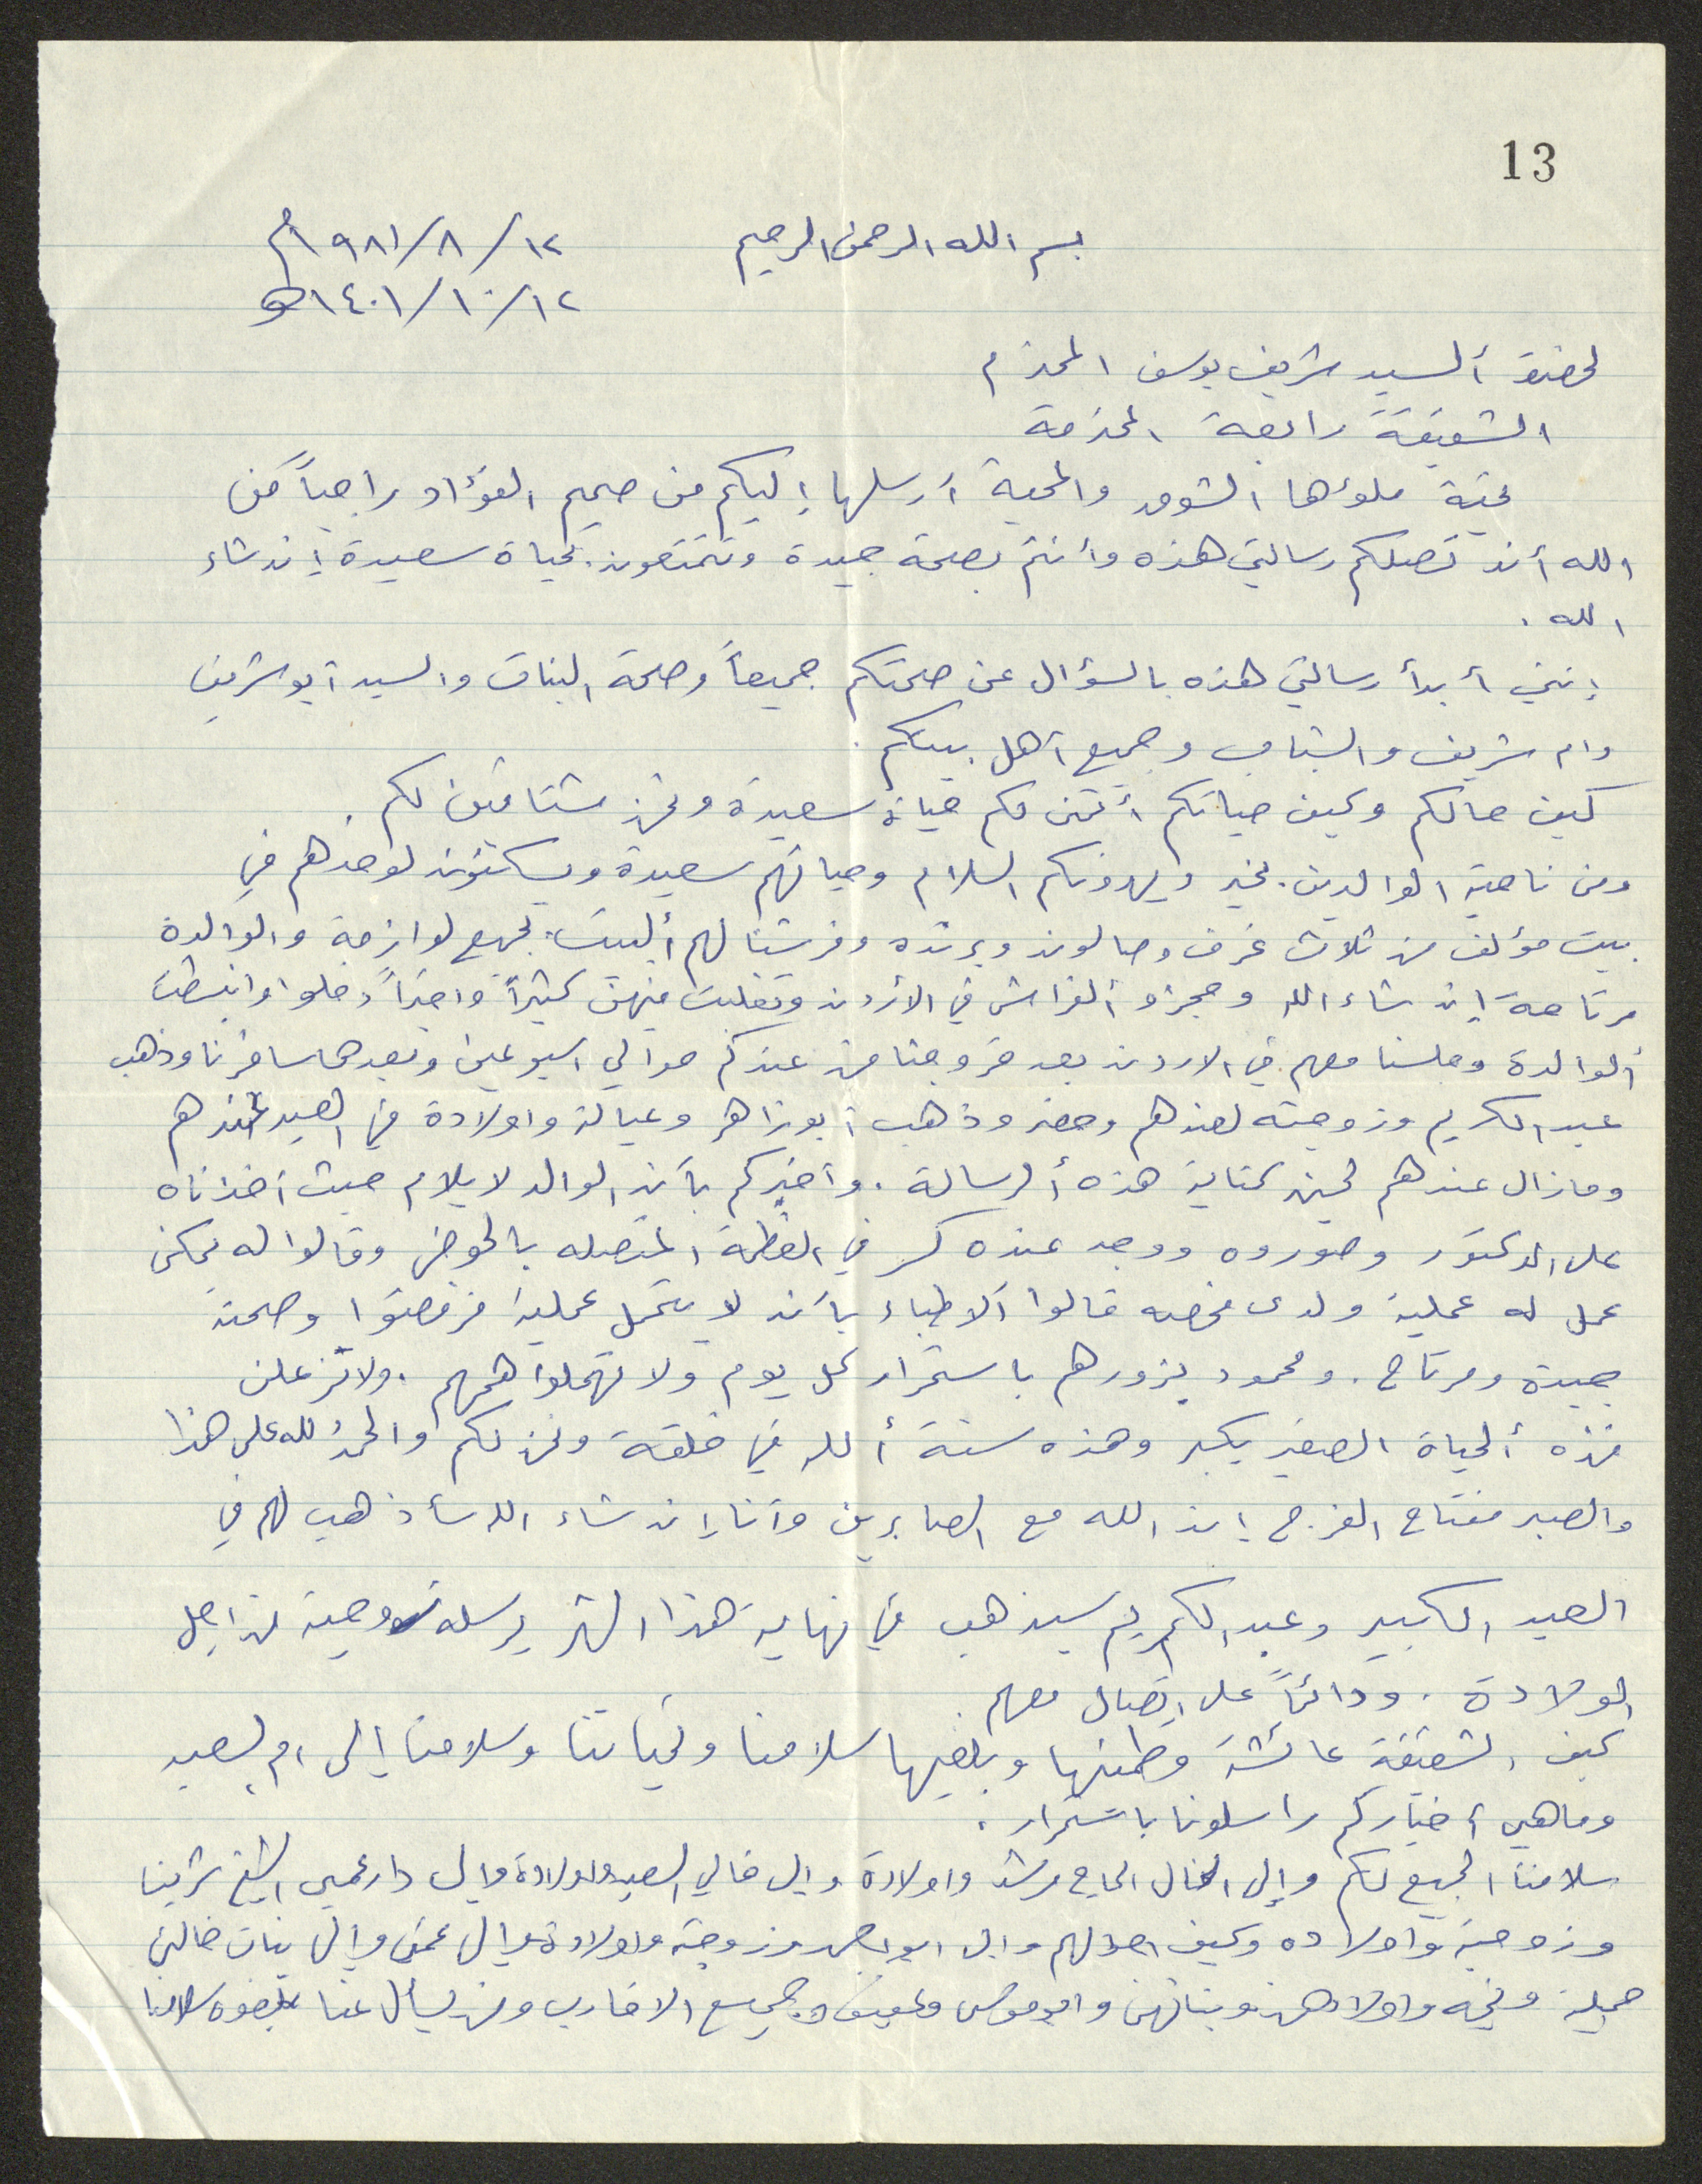 13
بسم الله الرحمن الرحيم ١٢/٨/١٩٨١م
١٢/١٠/١٤٠١هـ
لحضرة ألسيد شريف يوسف المحترم
الشقيقة رابعة المحترمة
تحية ملؤها الشوق والمحبة أرسلها إليكم من صميم الفؤاد راجياً من
الله أن تصلكم رسالتي هذه وأنتم بصحة جيدة وتتمتعون بحياة سعيدة إن شاء
الله .
إنني أبدأ رسالتي هذه بالسؤال عن صحتكم جميعاً وصحة البنات والسيد أبو شريف
وام شريف والشباب وجميع أهل بيتكم .
كيف حالكم وكيف حياتكم أتمنى لكم حياة سعيدة ونحن مشتاقين لكم .
ومن ناحية الوالدين بخير ويهدونكم السلام وحياتهم سعيدة ويسكنون لوحدهم في
بيت مؤلف من ثلاث غرف وصالون وبرنده وفرشنا لهم ألبيت بجميع لوازمه والوالدة
مرتاحة إن شاء الله وحجزو ألفراش في الأردن وتغلبت منهن كثيراً واخيراً دخلوا وانبسطت
ألوالدة وجلسنا معهم في الاردن بعد خروجنا من عندكم حوالي اسبوعين وبعدها سافرنا وذهب
عبد الكريم وزوجته لعندهم وحضر وذهب أبو زاهر وعياله واولادة في العيد لعندهم
وما زال عندهم لحين كتابة هذه ألرسالة . وأخبركم بأن الوالد لا يلام حيث أخذناه
على الدكتور وصوروه ووجد عنده كسر في العظمة المتصله بالحوض وقالوا له يمكن
عمل له عملية ولدى فحصه قالوا ألاطباء بأن لا يتحمل عملية فرفضوا وصحتة
جيدة ومرتاح . ومحمود يزورهم باستمرار كل يوم ولا تهملوا همهم . ولا تزعلن
فهذه ألحياة الصغير يكبر وهذه سنة ألله في خلقة ونحن لكم والحمد لله على هذا
والصبر مفتاح الفرج إن الله مع الصابرين وأنا إن شاء الله سأذهب لهم في
العيد الكبير وعبد الكريم سيذهب في نهاية هذا الشهر يرسله زوجتة من اجل
الولادة . ودائماً على اتصال معهم .
كيف الشقيقة عائشة وطمنها وبلغيها سلامنا وتحياتنا وسلامنا إلى ام لسعيد
وما هي أخباركم راسلونا باستمرار .
سلامنا لجميع لكم وإلى الخال الحاج مرشد واولادة وإلى خالي السعيد واولادة وإلى دار عمي الشيخ شريف
وزوجتة واولاده وكيف احوالهم وإلى ابو وزوجته واولادة وإلى عمتي وإلى بنات خالتي
جميلة وفتحيه واولادهن وبناتهن وابو موسى وعفيف وجميع الاقارب ومن يسأل عنا بلغوه سلامنا